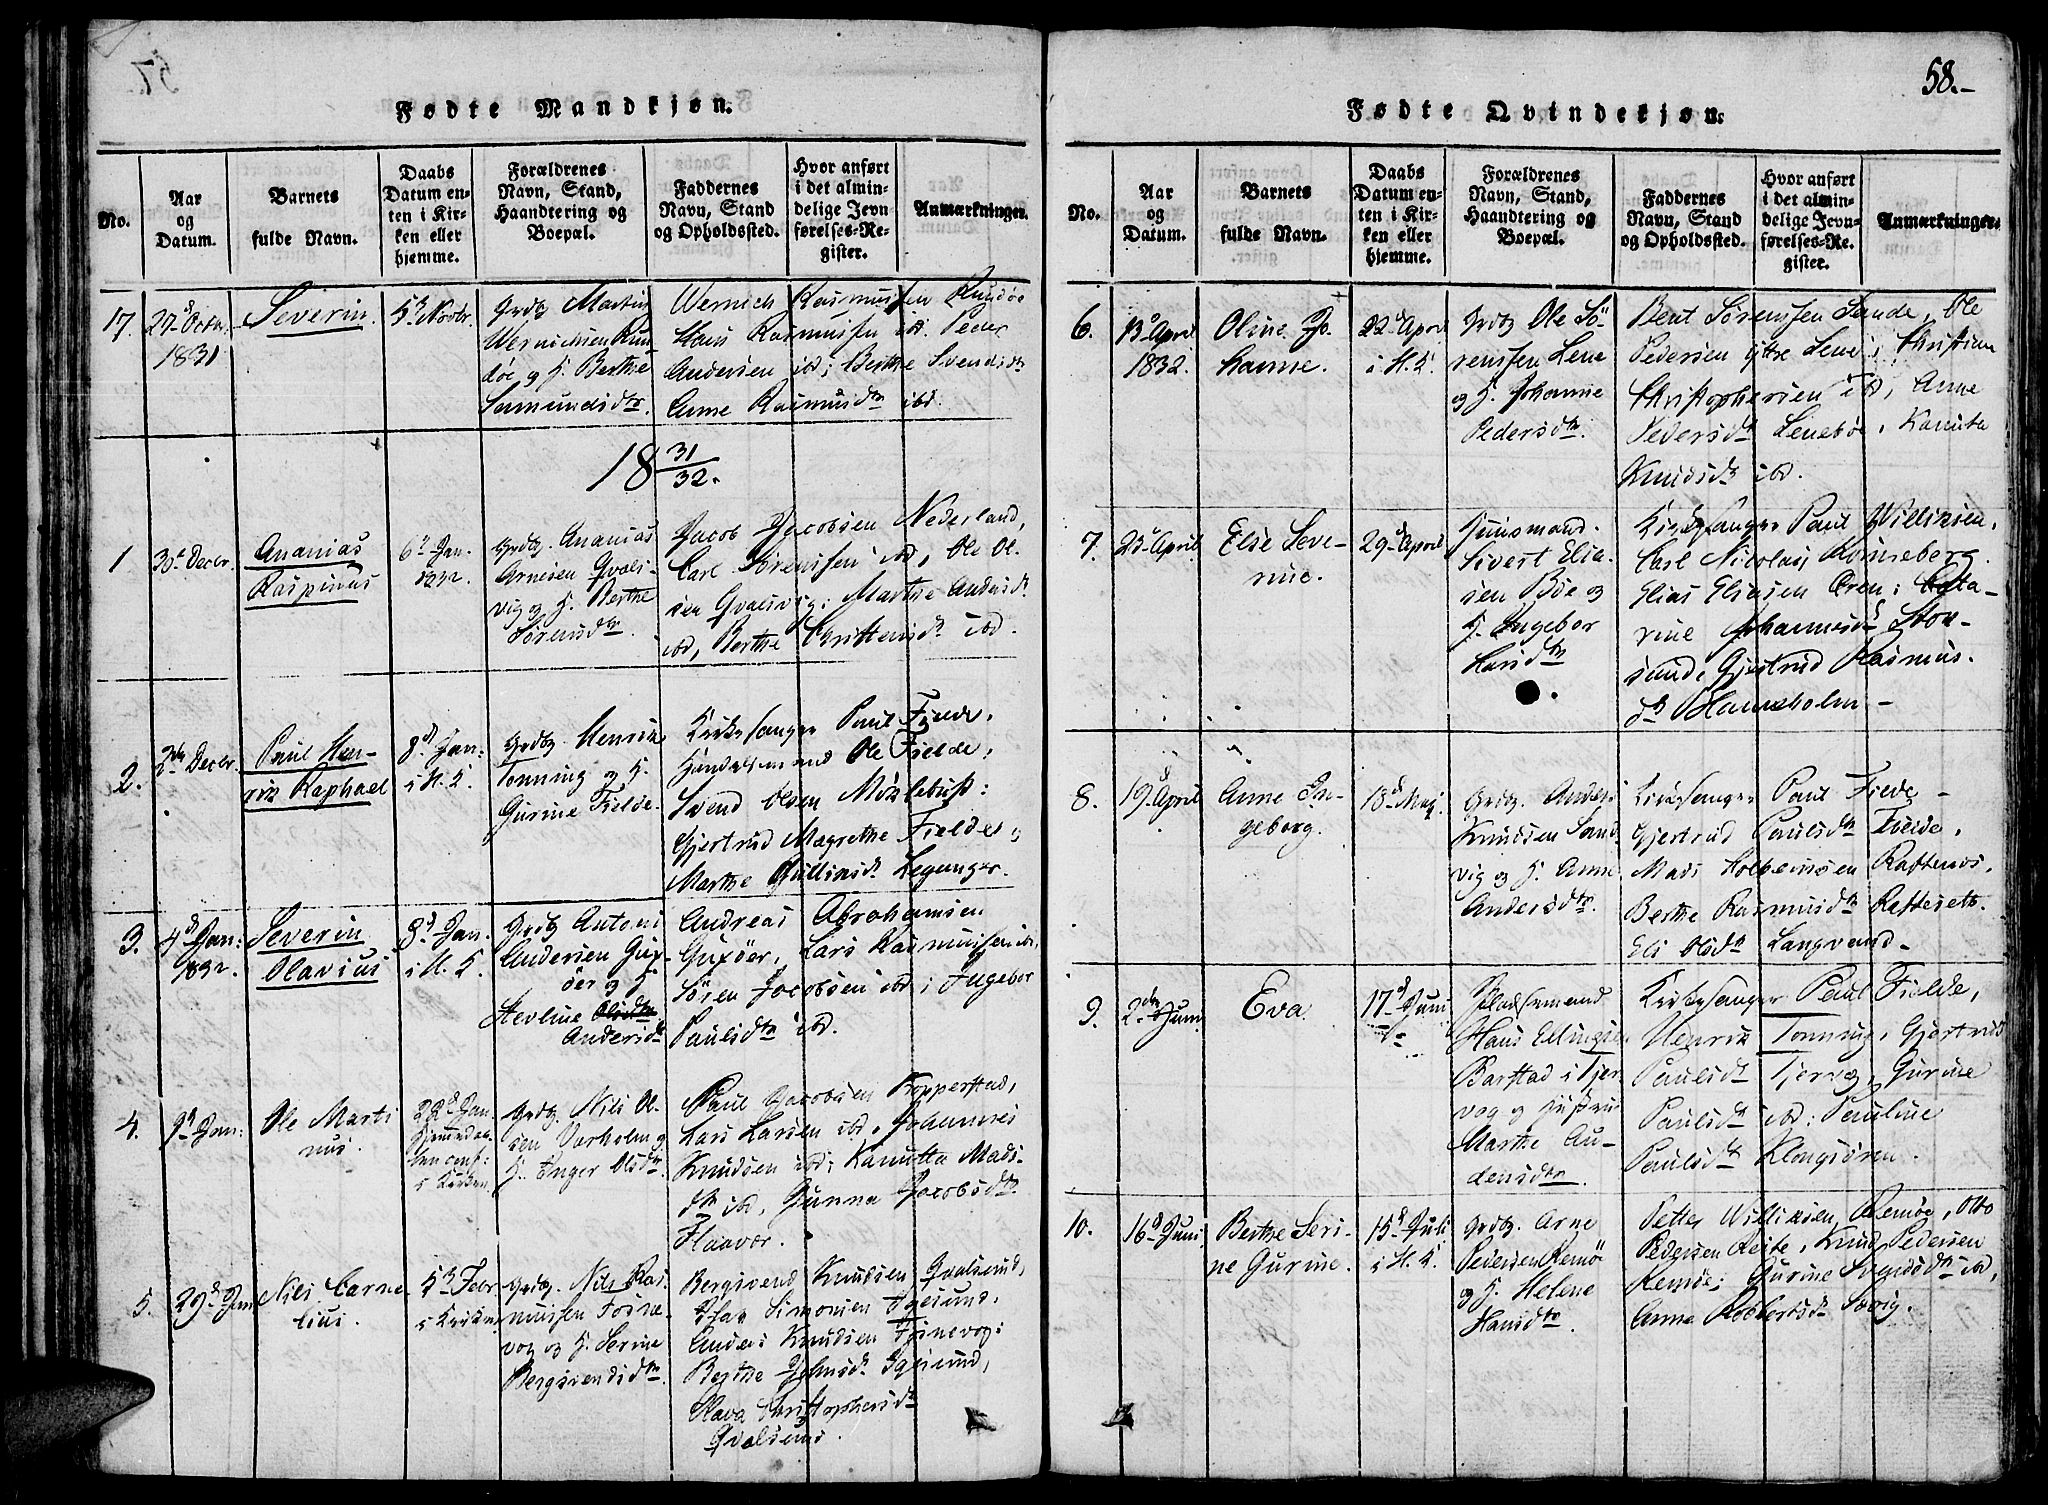 Fødte Mandkjøn.
No.
Aar
og
Datum.
Barnets
fulde Navn.
Daabs
Datum en-
ten i Kir-
ken eller
hjemme.
Forældrenes
Navn, Stand,
Haandtering og
Boepæl.
Faddernes
Navn, Stand
og Opholdssted.
Hvor anført
i det almin-
delige Jevn-
førelses-Re-
gister.
Anmærkninger.
17.
27d Octbr.
1831
Severin.
5d Novbr.
Grdbg Martin
Wernichsen Run-
döe og H. Berthe
Samundsdtr.
Wernich Rasmussen Rundöe
Hans Rasmussen ibd. Peder
Andersen ibd; Berthe Svendsdtr
Anne Rasmusdtr ibd.
18 31/32.
1
30d Decbr.
Ananias
Raspinus
6d Jan.
1832.
Grdbg. Ananias
Arnesen Qvals-
vig og H. Berthe
Sörensdtr.
Jacob Jacobsen Nederland,
Carl Sörensen ibd, Ole Ol-
sen Qvalsvig; Marthe Andersdt.
ibd, Berthe Christensdt ibd.
2.
2den Decbr.
Paul Hen-
rik Raphael
8d Jan:
i H. K.
Grdbg. Henrik
Tonning og H.
Gurine Fielde.
Kirkesanger Paul Fielde,
Handelsmand Ole Fielde,
Svend Olsen Möklebust:
Gjertrud Magrethe Fielde og
Marthe Gulliksdt. Leganger.
3.
4d Jan:
1832.
Severin
Olavius
8d Jan.
i H. K.
Grdbg Antoni
Andersen Gux-
öer og H.
Hevline Olsdtr
Andersdt
Andreas Abrahamsen
Guxöer, Lars Rasmussen ibd,
Sören Jacobsen ibd; Ingebor
Paulsdtr ibd.
4.
9d Jan:
Ole Marti
nus.
22d Jan.
hjemmedøbt
conf:
i Kirken.
Grdbg. Nils Ol-
sen Vorholm og
H. Inger Olsdtr
Paul Jacobsen Kopperstad,
Lars Larsen ibd, Johannes
Knudsen ibd; Kanutta Mads-
dtr ibd, Gunna Jacobsdtr
Flaavær.
5.
29d Jan
Nils Carne
lius.
5d Febr
i Kirken
Grdbg. Nils Ras
mussen Fosna
vog og H. Serine
Bergsvendsdtr.
Bergsvend Knudsen Qvalsund,
Peter Simonsen Igesund,
Anders Knudsen Fosnevog;
Berthe Johnsdt. Igesund,
Hava Christophersdtr
Qvalsund.
58.-
Fødte Qvindekjøn.
No.
Aar
og
Datum.
Barnets
fulde Navn.
Daabs
Datum en-
ten i Kir-
ken eller
hjemme.
Forældrenes
Navn, Stand,
Haandtering og
Boepæl.
Faddernes
Navn, Stand
og Opholdssted.
Hvor anført
i det almin-
delige Jevn-
førelses-Re.
gister.
Anmærkninger.
6.
13d April
1832.
Oline Jo-
hanne.
22d April
i H. K.
Grdbg Ole Sö-
rensen Lene
og H. Johanne
Pedersdtr.
Bent Sörensen Sande, Ole
Pedersen ytre Lene; Christine
Christophersen ibd, Anne
Pedersdt Lenebøe, Kanuta
Knudsdtr ibd.
7.
23d April
Else Seve-
rine.
29d April
Huusmand.
Sivert Elia-
sen Böe og
H. Ingebor
Hansdtr
Kirkesanger Paul Williksen,
Carl Nicolai Rönneberg
Elias Eliasen Ören; Cata-
rine Johannesd Stok-
sund, Gjertrud Rasmus.
dt Hansholm -
8.
19d April
Anne In-
geborg.
18d Maj.
Grdbg. Anders
Knudsen Sand
vig og H. Anne
Andersdtr.
Kirkesanger Paul Fielde -
Gjertrud Paulsdtr Fielde,
Mads Torbernsen Raftenes,
Berthe Rasmusdtr Refteseth.
Eli Olsdtr Langvand-
9.
2den Juni
Eva.
17d Juni
Pladsemand
Hans Ellingsen
Barstad i Tjer
vog og Hustru
Marthe Au-
densdtr.
Kirkesanger Paul Fielde,
Henrik Tonning, Gjertrud
Paulsdt Tjervog, Gurine
Paulsdt ibd: Pauline
Paulsdt Klongsören.
10.
16d Juni
Berthe Seri-
ne Gurine.
15d Juli
i H. K.
Grdbg. Arne
Pedersen Remö
og H. Helene
Hansdtr.
Petter Williksen Remöe, Otto
Pedersen Reite, Knud Pedersen
Remöe; Gurine Svendsdtr ibd,
Anne Robbertsdt Sævig.